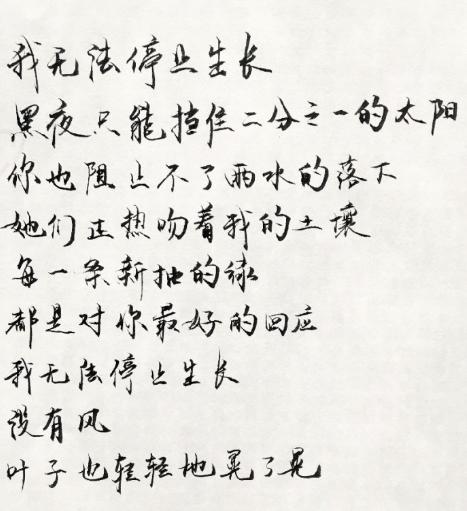 我无法停止生长
黑夜只能挡住二分之一的太阳
你也阻止不了雨水的落下
她们正热吻着我的土壤
每一条新抽的绿
都是对你最好的回应
我无法停止生长
没有风
叶子也轻轻地晃了晃